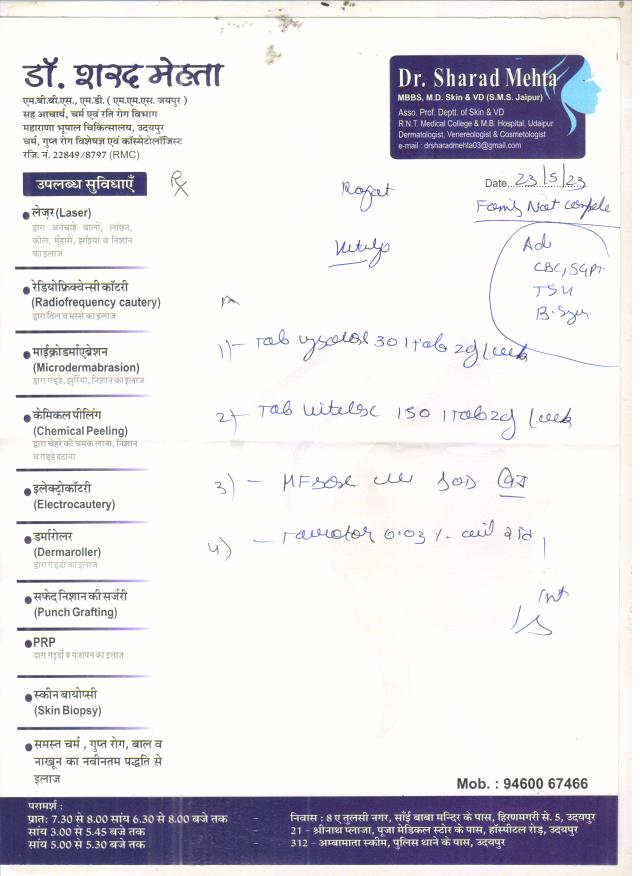 डॉ. शरद मेहता
एम.बी.बी.एस., एम.डी. ( एम.एम.एस. जयपुर )
सह आचार्य, चर्म एवं रति रोग विभाग
महाराणा भूपाल चिकित्सालय, उदयपुर
चर्म, गुप्त रोग विशेषज्ञ एवं कॉस्मेटोलॉजिस्ट
रजि. नं. 22849/8797 (RMC)
Dr. Sharad Mehta
MBBS, M.D. Skin & VD (S.M.S. Jaipur)
Asso. Prof. Deptt. of Skin & VD
R.N.T. Medical College & M.B. Hospital, Udaipur
Dermatologist, Venereologist & Cosmetologist
e-mail : drsharadmehta03@gmail.com
Date 23/5/23
Rx
Family Not Complete
CBC, SGPT
1)- Tab 30 1 tab
2)- Tab 150 1 tab
3) -
4) - 0.03 %
उपलब्ध सुविधाएँ
लेज़र (Laser)
द्वारा अनचाहे बालों, लांछन,
कील, मुंहासे, झाईयां व निशान
का इलाज
रेडियोफ्रिक्वेन्सी कॉटरी
(Radiofrequency cautery)
द्वारा तिल व मस्से का इलाज
माईक्रोडर्माएब्रेशन
(Microdermabrasion)
द्वारा गड्डे, झुर्रिया, निशान का इलाज
केमिकल पीलिंग
(Chemical Peeling)
द्वारा चेहरे की चमक लाना, निशान
व गड्डे हटाना
इलेक्ट्रोकॉटरी
(Electrocautery)
डर्मारोलर
(Dermaroller)
द्वारा गड्डों का इलाज
सफेद निशान की सर्जरी
(Punch Grafting)
PRP
द्वारा गड्डों व गंजापन का इलाज
स्कीन बायोप्सी
(Skin Biopsy)
समस्त चर्म , गुप्त रोग, बाल व
नाखून का नवीनतम पद्धति से
इलाज
Mob. : 94600 67466
परामर्श :
प्रात: 7.30 से 8.00 सांय 6.30 से 8.00 बजे तक - निवास : 8 ए तुलसी नगर, साँई बाबा मन्दिर के पास, हिरणमगरी से. 5, उदयपुर
सांय 3.00 से 5.45 बजे तक - 21 - श्रीनाथ प्लाजा, पूजा मेडिकल स्टोर के पास, हॉस्पीटल रोड़, उदयपुर
सांय 5.00 से 5.30 बजे तक - 312 - अम्बामाता स्कीम, पुलिस थाने के पास, उदयपुर